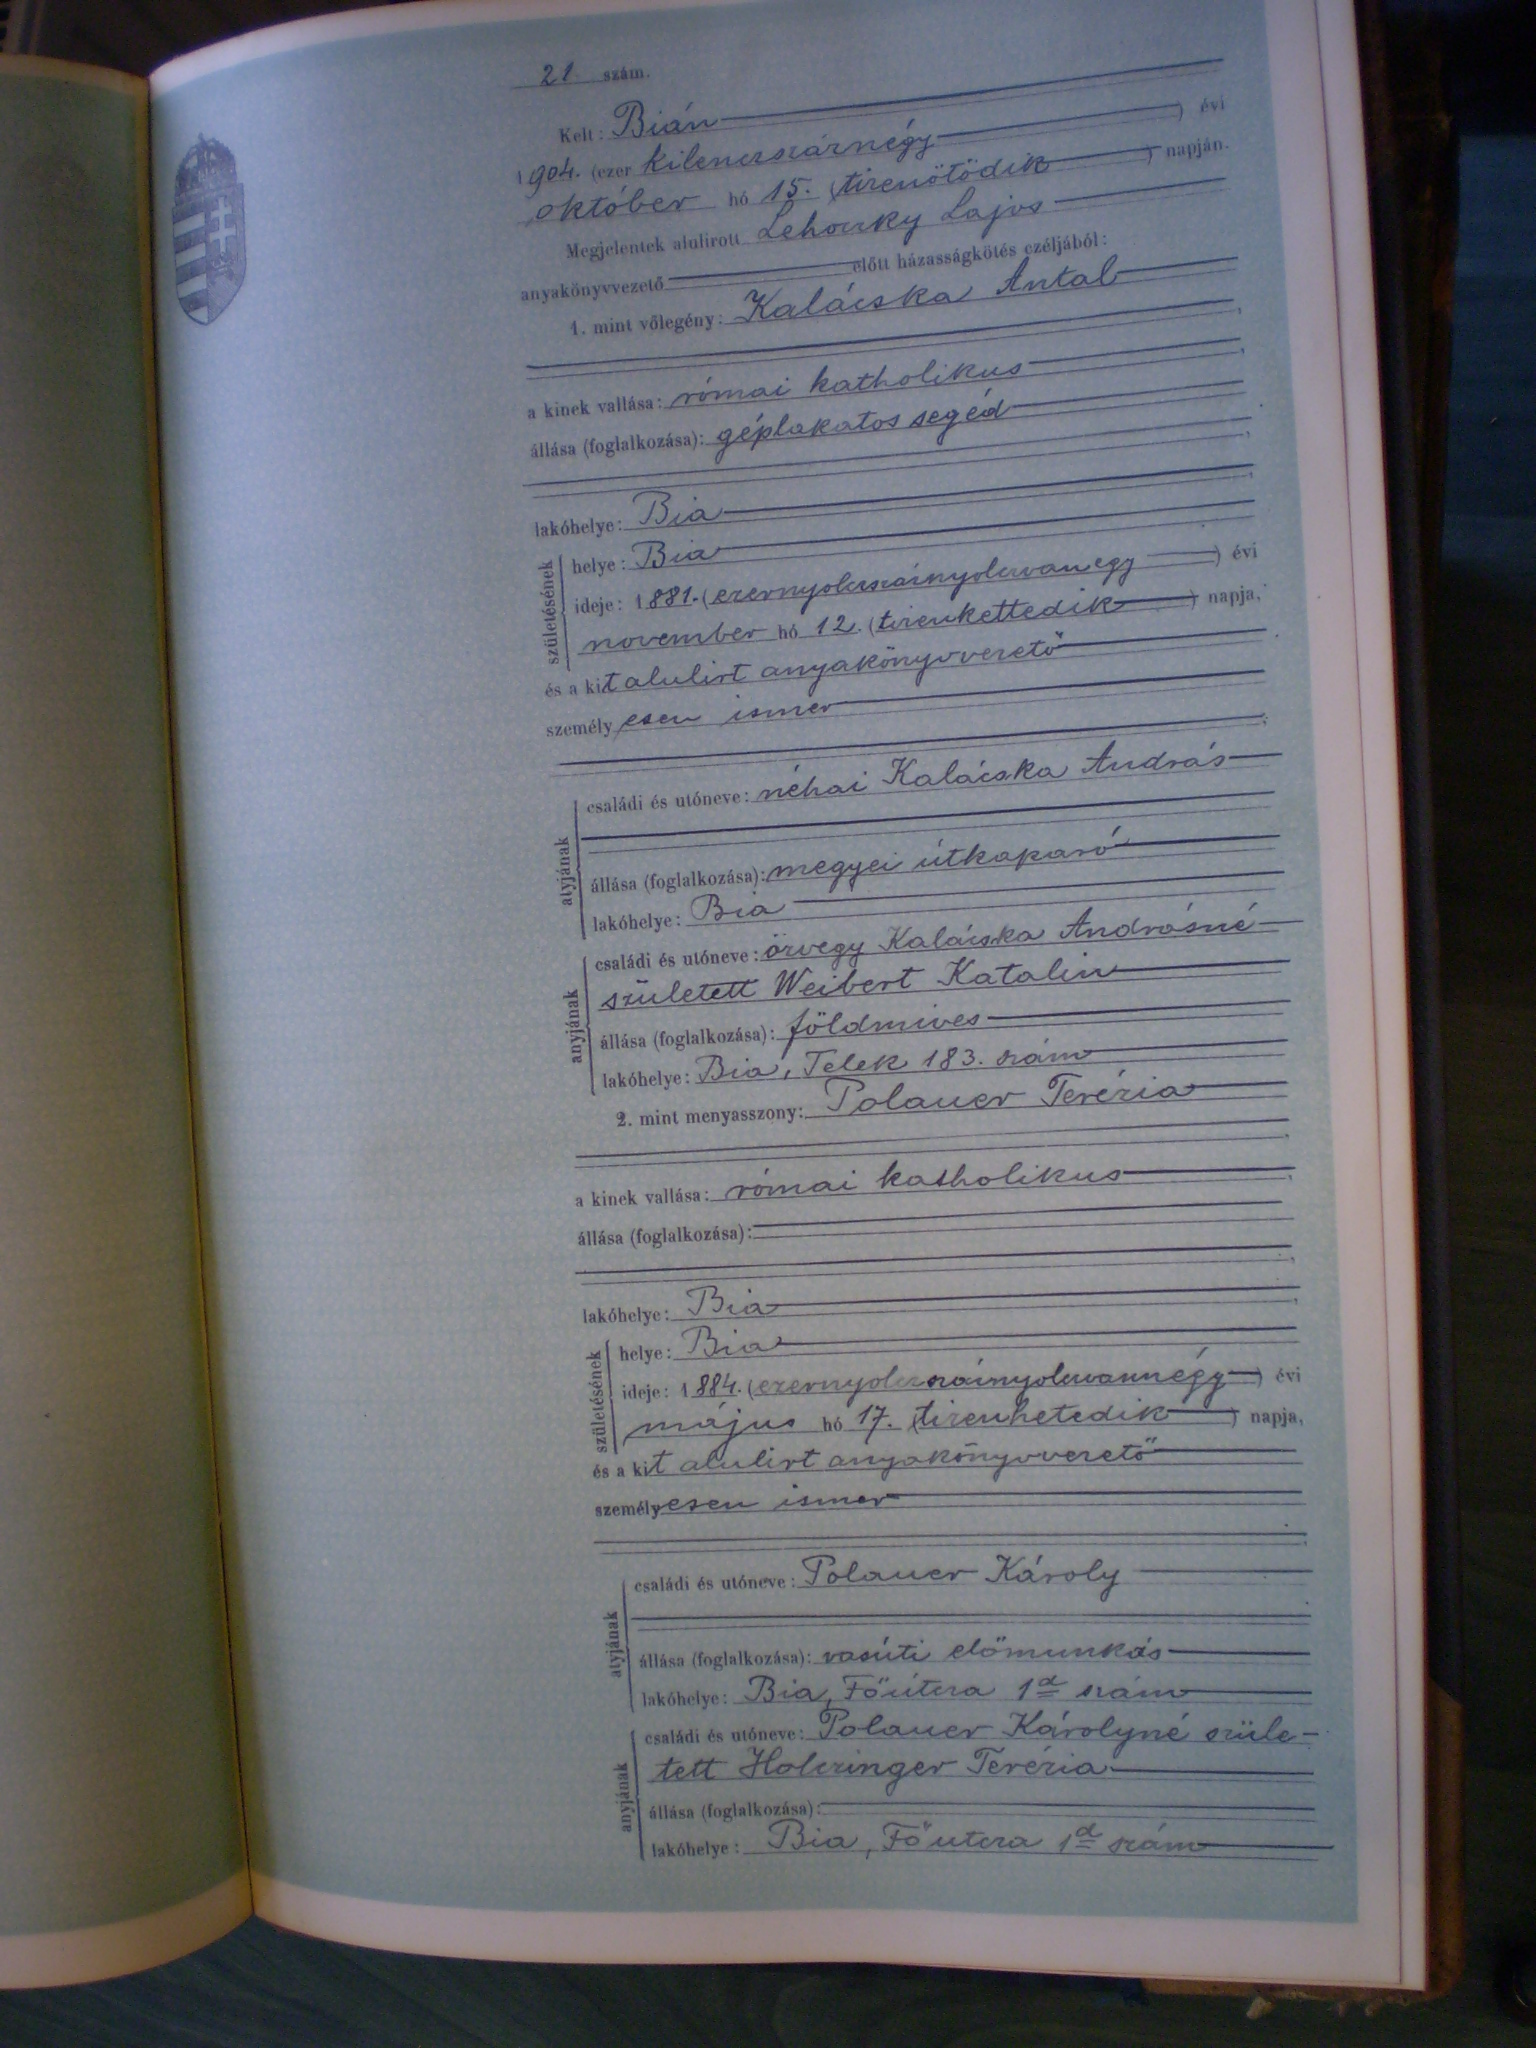 21 szám.
Kelt: Bián
1904. (ezer kilenczszáznégy ) évi
október hó 15. (tizenötödik ) napján.
Megjelentek alulirott Lehoczky Lajos
anyakönyvvezető előtt házasságkötés czéljából:
1. mint vőlegény: Kalácska Antal
a kinek vallása: római katholikus
állása (foglalkozása): géplakatos segéd
lakóhelye: Bia
születésének
helye: Bia
ideje: 1881. (ezernyolczszáznyolczvanegy ) évi
november hó 12. (tizenkettedik ) napja,
és a kit alulirt anyakönyvvezető
személyesen ismer
atyjának
családi és utóneve: néhai Kalácska András
állása (foglalkozása): megyei útkaparó
lakóhelye: Bia
anyjának
családi és utóneve: özvegy Kalácska Andrásné
született Weibert Katalin
állása (foglalkozása): földmives
lakóhelye: Bia, Telek 183. szám
2. mint menyasszony: Polauer Terézia
a kinek vallása: római katholikus
állása (foglalkozása):
lakóhelye: Bia
születésének
helye: Bia
ideje: 1884. (ezernyolczszáznyolczvannégy ) évi
május hó 17. (tizenhetedik ) napja,
és a kit alulirt anyakönyvvezető
személyesen ismer
atyjának
családi és utóneve: Polauer Károly
állása (foglalkozása): vasúti előmunkás
lakóhelye: Bia, Főútcza 1a szám
anyjának
családi és utóneve: Polauer Károlyné szüle-
tett Holczinger Terézia
állása (foglalkozása):
lakóhelye: Bia, Főutcza 1a szám